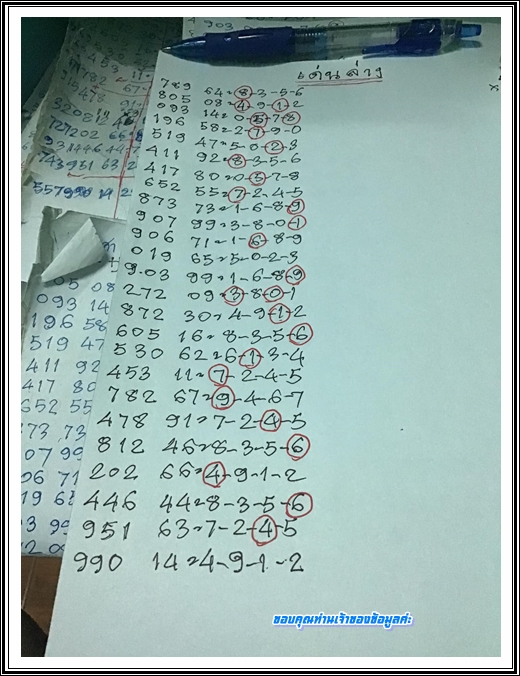 เด่นล่าง
789 64=8-3-5-6
805 08=4-9-1-2
093 14=0-5-7-8
196 58=2-7-9-0
519 47=5-0-2-3
411 92=8-3-5-6
417 80=0-3-7-8
652 55=7-2-4-5
873 73=1-6-8-9
907 99=3-8-0-1
906 71=1-6-8-9
019 65=5-0-2-3
903 99=1-6-8-9
272 09=3-8-0-1
872 30=4-9-1-2
605 16=8-3-5-6
530 62=6-1-3-4
453 11=7-2-4-5
782 67=9-4-6-7
478 91=7-2-4-5
812 46=8-3-5-6
202 66=4-9-1-2
446 44=8-3-5-6
951 63=7-2-4-5
990 14=4-9-1-2
743951 63
557990 14
093 14
196 58
519 47
411 92
417 80
652 55
ขอบคุณท่านเจ้าของข้อมูลค่ะ